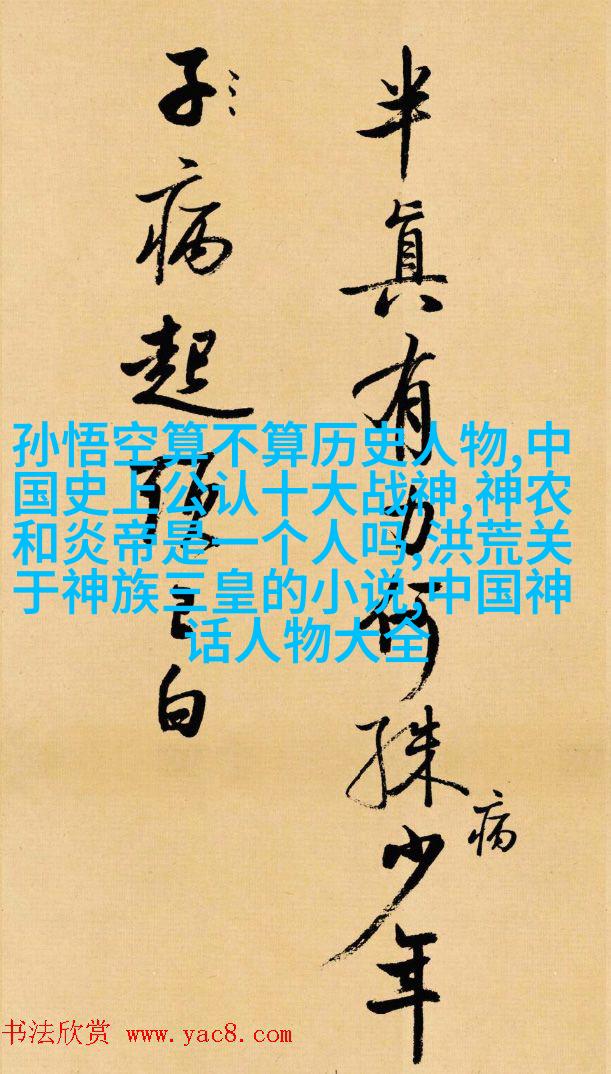 半眞有力何殊少年
病
子病起頭已白
孙悟空算不算历史人物,中
国史上公认十大战神,神农
和炎帝是一个人吗,洪荒关
于神族三皇的小说,中国神
话人物大全
书法欣赏 www.yac8.com